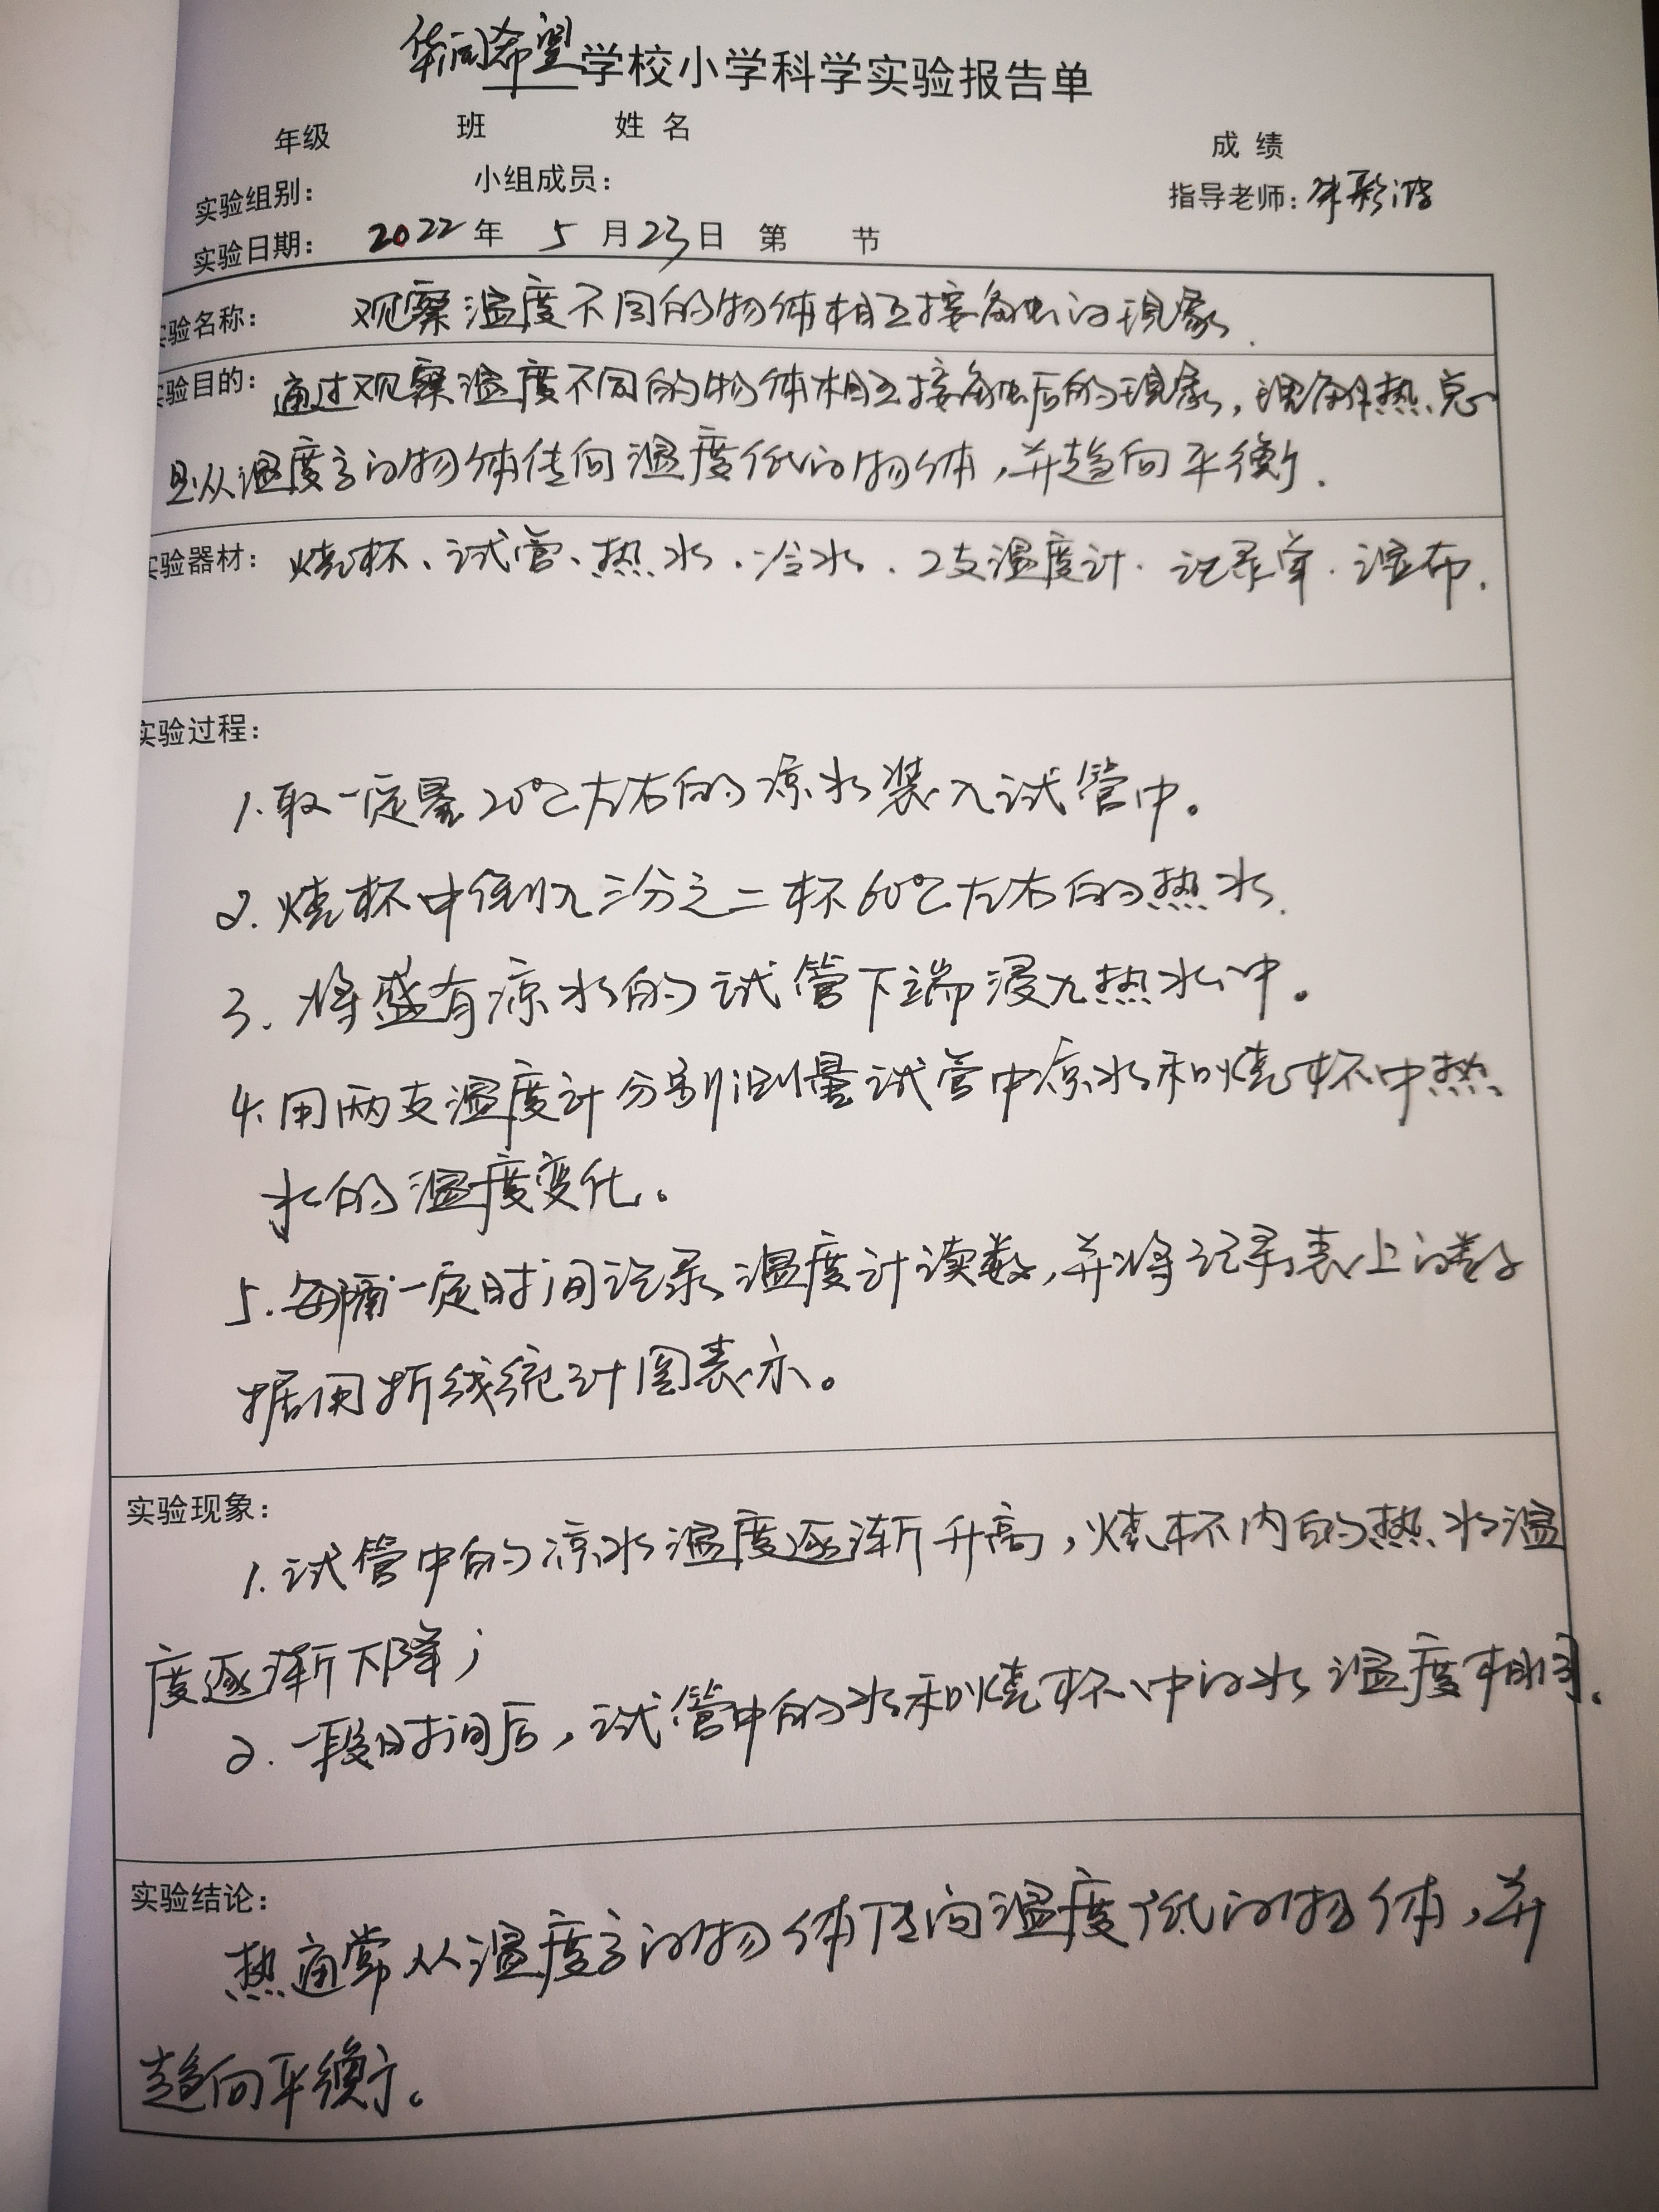 华润希望学校小学科学实验报告单
年级 班 姓名 成绩
实验组别： 小组成员： 指导老师：
实验日期： 2022年 5月23日 第 节
实验名称： 观察温度不同的物体相互接触的现象.
实验目的：通过观察温度不同的物体相互接触后的现象，理解热总
是从温度高的物体传向温度低的物体，并趋向平衡.
实验器材：烧杯、试管、热水、冷水、2支温度计、记录单、湿布.
实验过程：
1.取一定量20℃左右的凉水装入试管中。
2.烧杯中倒入三分之二杯60℃左右的热水.
3.将盛有凉水的试管下端浸入热水中。
4.用两支温度计分别测量试管中凉水和烧杯中热
水的温度变化。
5.每隔一定时间记录温度计读数，并将记录表上的数
据用折线统计图表示。
实验现象：
1.试管中的凉水温度逐渐升高，烧杯内的热水温
度逐渐下降；
2.一段时间后，试管中的水和烧杯中的水温度相同。
实验结论：
热通常从温度高的物体传向温度低的物体，并
趋向平衡。